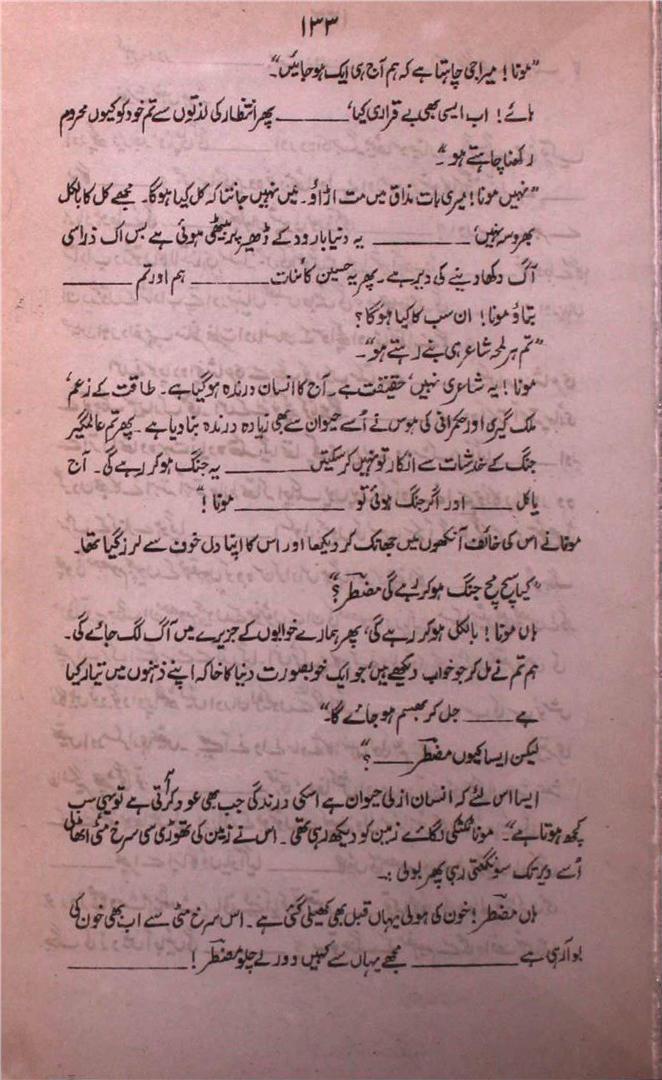 ۱۳۳
"مونا! میرا جی چاہتا ہے کہ ہم آج ہی ایک ہو جائیں"۔
ہائے! اب ایسی بھی بے قراری کیا، ______ پھر انتظار کی لذتوں سے تم خود کو کیوں محروم
رکھنا چاہتے ہو"۔
"نہیں مونا! میری بات مذاق میں مت اڑاؤ۔ میں نہیں جانتا کہ کل کیا ہوگا۔ مجھے کل کا بالکل
بھروسہ نہیں، ______ یہ دنیا بارود کے ڈھیر پر بیٹھی ہوئی ہے بس اک ذرا سی
آگ دکھا دینے کی دیر ہے۔ پھر یہ حسین کائنات ______ ہم اور تم ______
بتاؤ مونا! ان سب کا کیا ہوگا؟
"تم ہر لمحہ شاعر ہی بنے رہتے ہو"۔
مونا! یہ شاعری نہیں، حقیقت ہے۔ آج کا انسان درندہ ہو گیا ہے۔ طاقت کے زعم،
ملک گیری اور حکمرانی کی ہوس نے اُسے حیوان سے بھی زیادہ درندہ بنا دیا ہے۔ پھر تم عالمگیر
جنگ کے خدشات سے انکار تو نہیں کر سکتیں ______ یہ جنگ ہو کر رہے گی۔ آج
یا کل ____ اور اگر جنگ ہوئی تو ______ مونا!"
مونا نے اس کی خائف آنکھوں میں جھانک کر دیکھا اور اس کا اپنا دل خوف سے لرز گیا تھا۔
"کیا سچ مچ جنگ ہو کر رہے گی مضطرؔ؟"
ہاں مونا! بالکل ہو کر رہے گی، پھر ہمارے خوابوں کے جزیرے میں آگ لگ جائے گی۔
ہم تم نے مل کر جو خواب دیکھے ہیں، جو ایک خوبصورت دنیا کا خاکہ اپنے ذہنوں میں تیار کیا
ہے ____ جل کر بھسم ہو جائے گا۔"
لیکن ایسا کیوں مضطرؔ ____؟"
ایسا اس لئے کہ انسان ازلی حیوان ہے اسکی درندگی جب بھی عود کر آتی ہے تو یہی سب
کچھ ہوتا ہے"۔ مونا ٹکٹکی لگائے زمین کو دیکھ رہی تھی۔ اس نے زمین کی تھوڑی سی سرخ مٹی اٹھالی
اُسے دیر تک سونگھتی رہی پھر بولی:۔
ہاں مضطرؔ! خون کی ہولی یہاں قبل بھی کھیلی گئی ہے۔ اس سرخ مٹی سے اب بھی خون کی
بو آرہی ہے ______ مجھے یہاں سے کہیں دور لے چلو مضطرؔ! ______